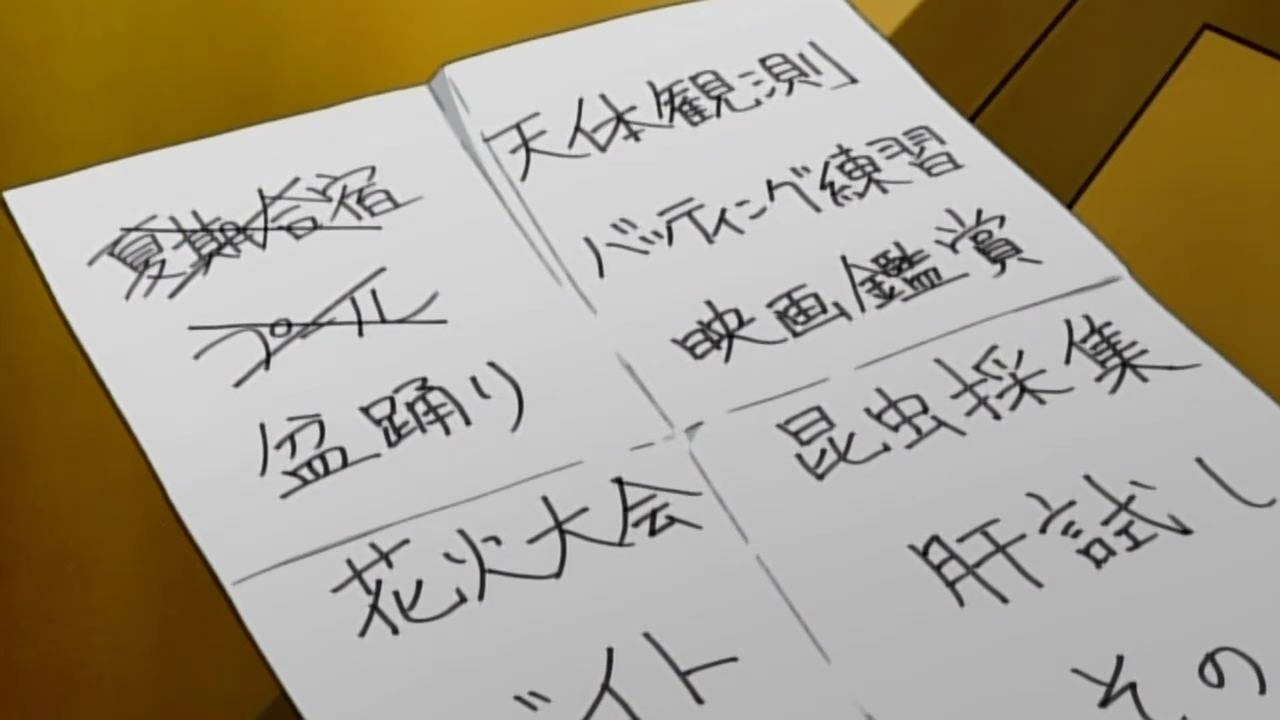 夏期合宿
プール
盆踊り
花火大会
バイト
天体観測
バッティング練習
映画鑑賞
昆虫採集
肝試し
その